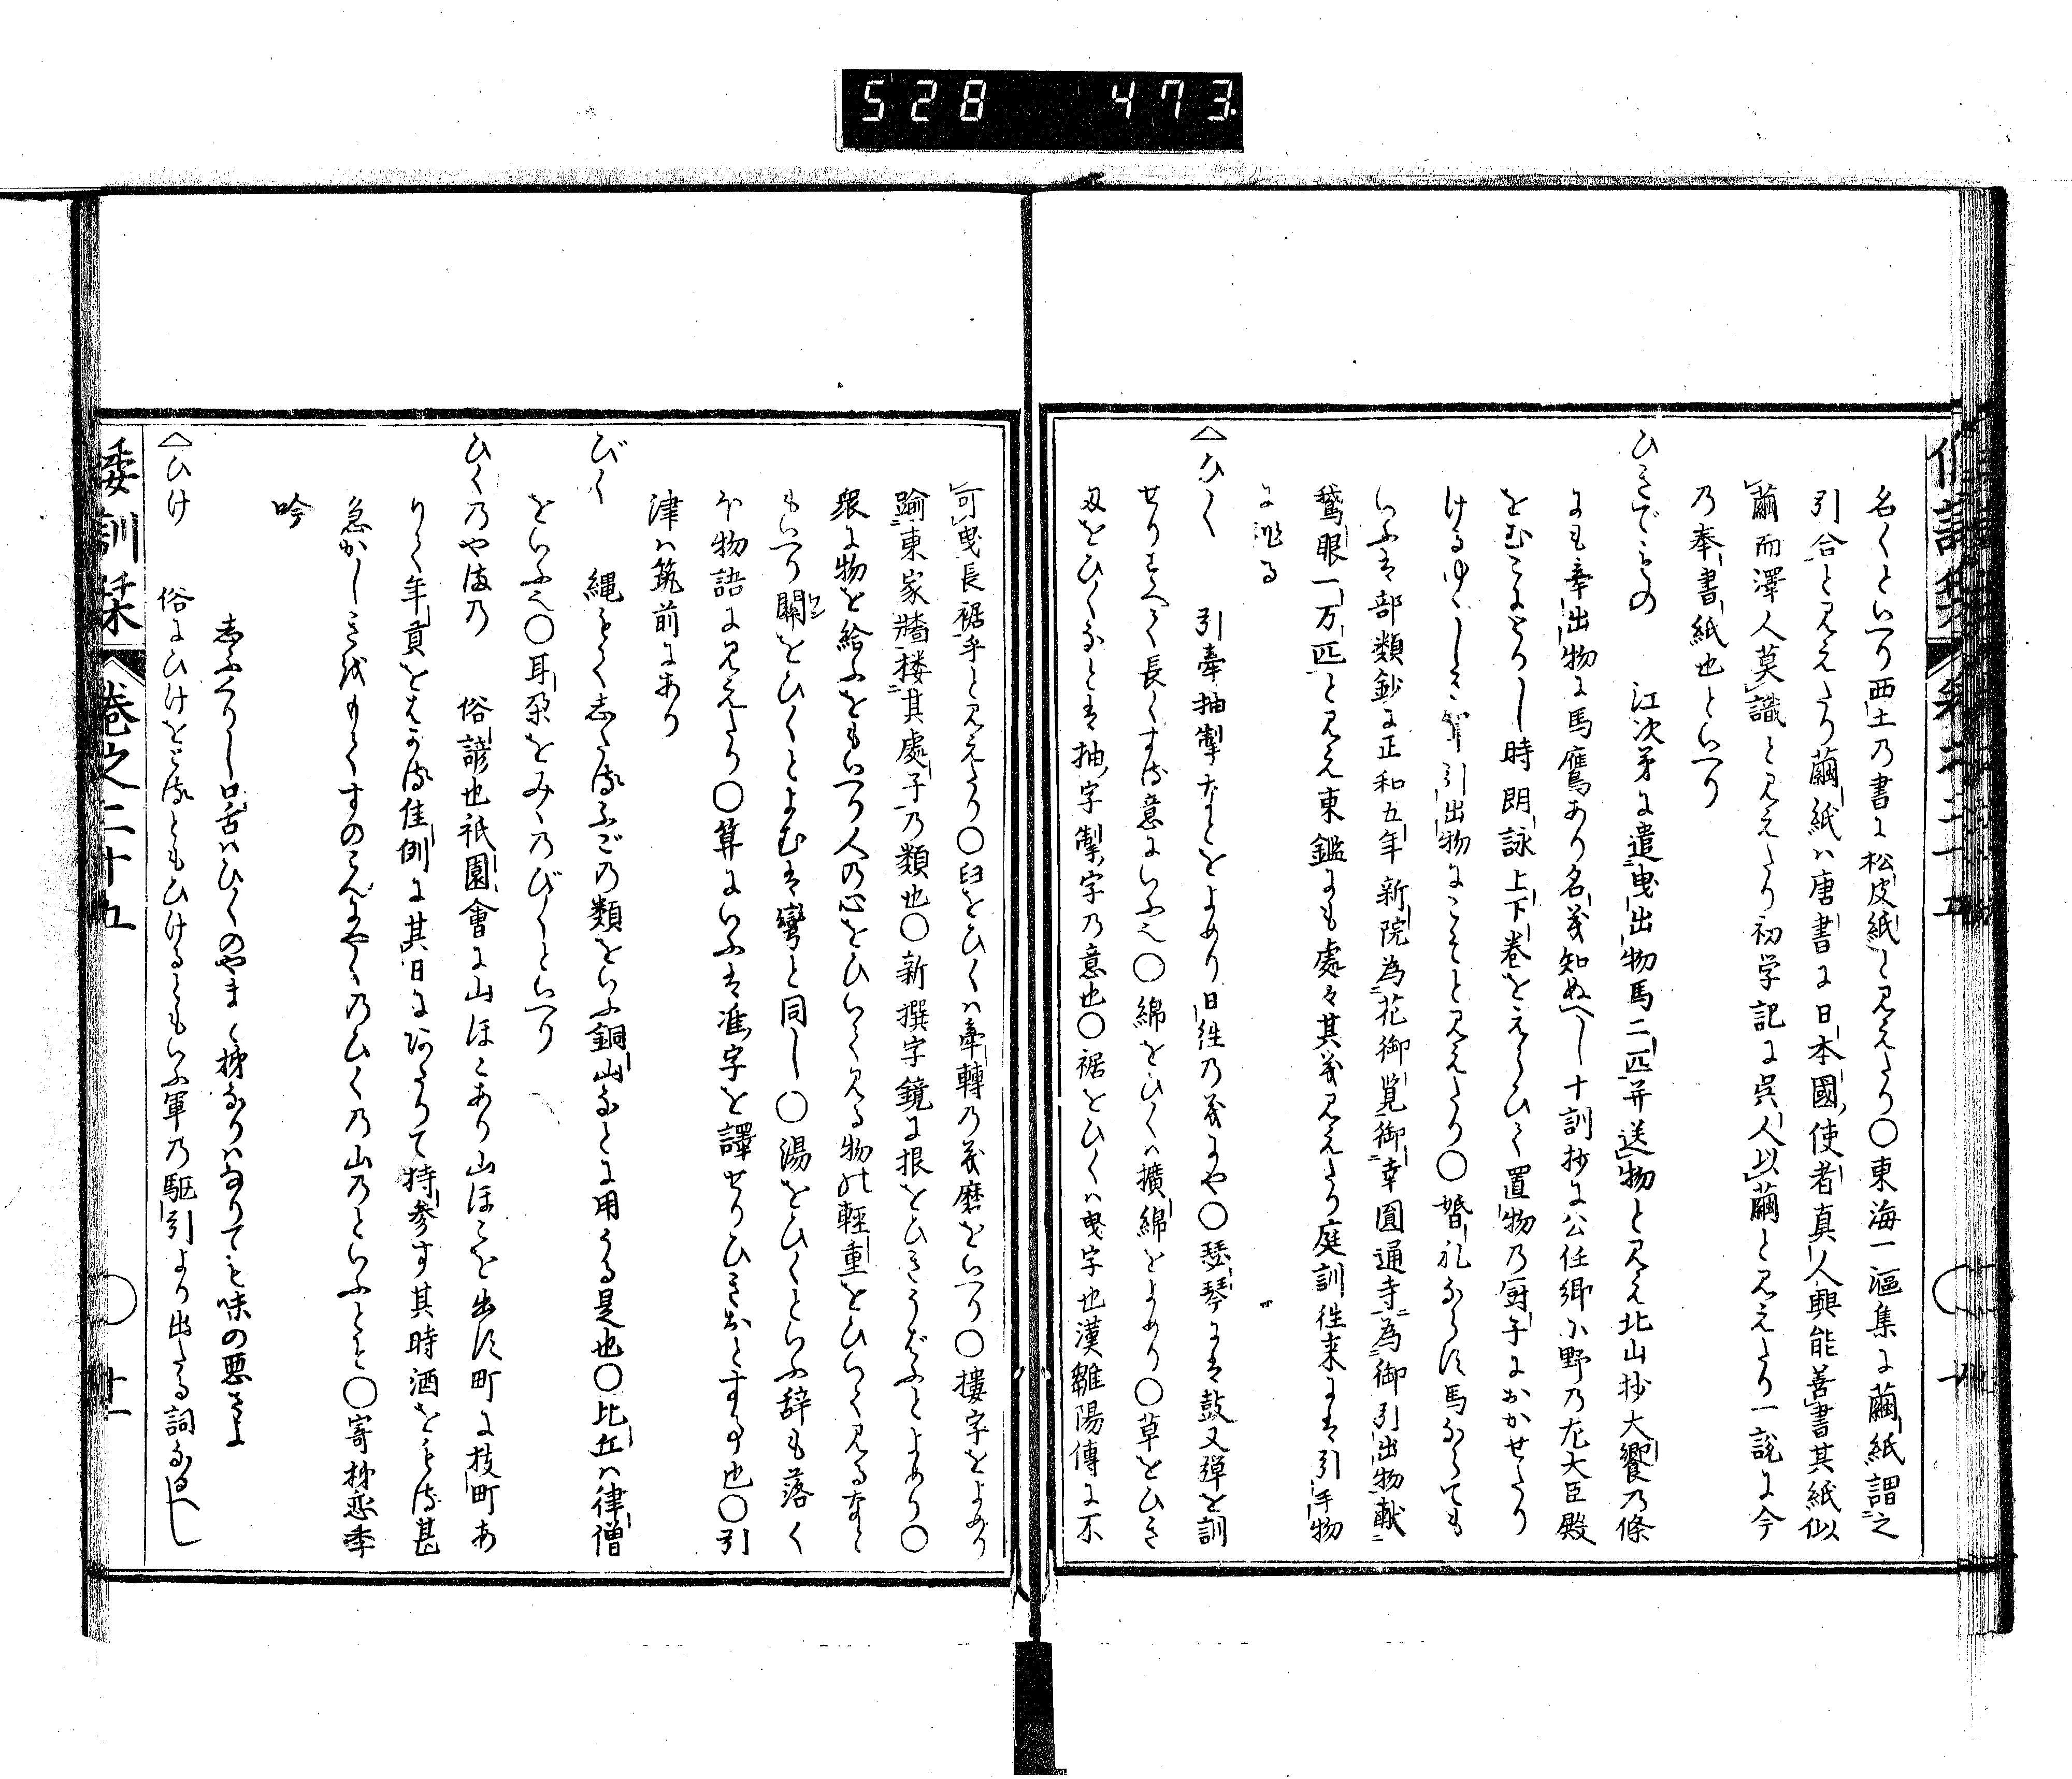 528 473
名くといへり西土の書に松皮紙と見えたり○東海一漚集に繭紙謂之
引合と見えたり繭紙ハ唐書に日本國使者真人興能善書其紙似
繭而澤人莫識と見えたり初学記に呉人以繭と見えたり一説に今
の奉書紙也といへり
ひきでもの 江次第に遣曳出物馬二匹并送物と見え北山抄大饗の條
にも牽出物に馬鷹あり名義知ぬへし十訓抄に公任卿小野の九大臣殿
をむこにとりし時朗詠上下巻をえらひて置物の厨子におかせたり
ける 引出物にことと見えたり○婚礼ならぬ馬ならても
いふは部類鈔に正和五年新院為花御覧御幸圓通寺為御引出物献
鵞眼一万匹と見え東鑑にも處々其義見えたり庭訓往来には引手物
に作る
△ひく 引牽抽掣なとをよめり日往の義にや○瑟琴には鼓又弾を訓
せりすへて長くする意にいふ也○綿をひくハ擴綿をよめり○草をひき
刄をひくなとは抽字掣字の意也○裾をひくハ曳字也漢鄒陽傳に不
可曳長裾乎と見えたり○臼をひくハ牽轉の義磨をいへり○摟字をよめり
踰東家牆摟其處子の類也○新撰字鏡に抿をひきうばふとよめり○
衆に物を給ふをもいへり人の心をひいて見る物の輕重をひいて見るなと
もいへり關をひくとよむは彎と同し○湯をひくといふ辞も落く
ほ物語に見えたり○算にいふは准字を譯せりひきおとす事也○引
津ハ筑前にあり
びく 縄もてしたるふごの類をいふ銅山なとに用うる是也○比丘ハ律僧
をいふ也○耳朶をみゝのびくといへり
ひくのやまの 俗諺也祇園會に山ほこあり山ほこを出す町に枝町あ
りて年貢をはかる佳例に其日にあたりて持参す其時酒をもる甚
急かしきをもてすのこんにやくのひくの山のといふとそ○寄柿恋季
吟
しふくりし口舌ハひくのやまく柿なりハなりても味の悪さよ
△ひけ 俗にひけをとるともひけるともいふ軍の駈引より出たる詞なるへし
倭訓栞 巻之二十五 ○ 廿一